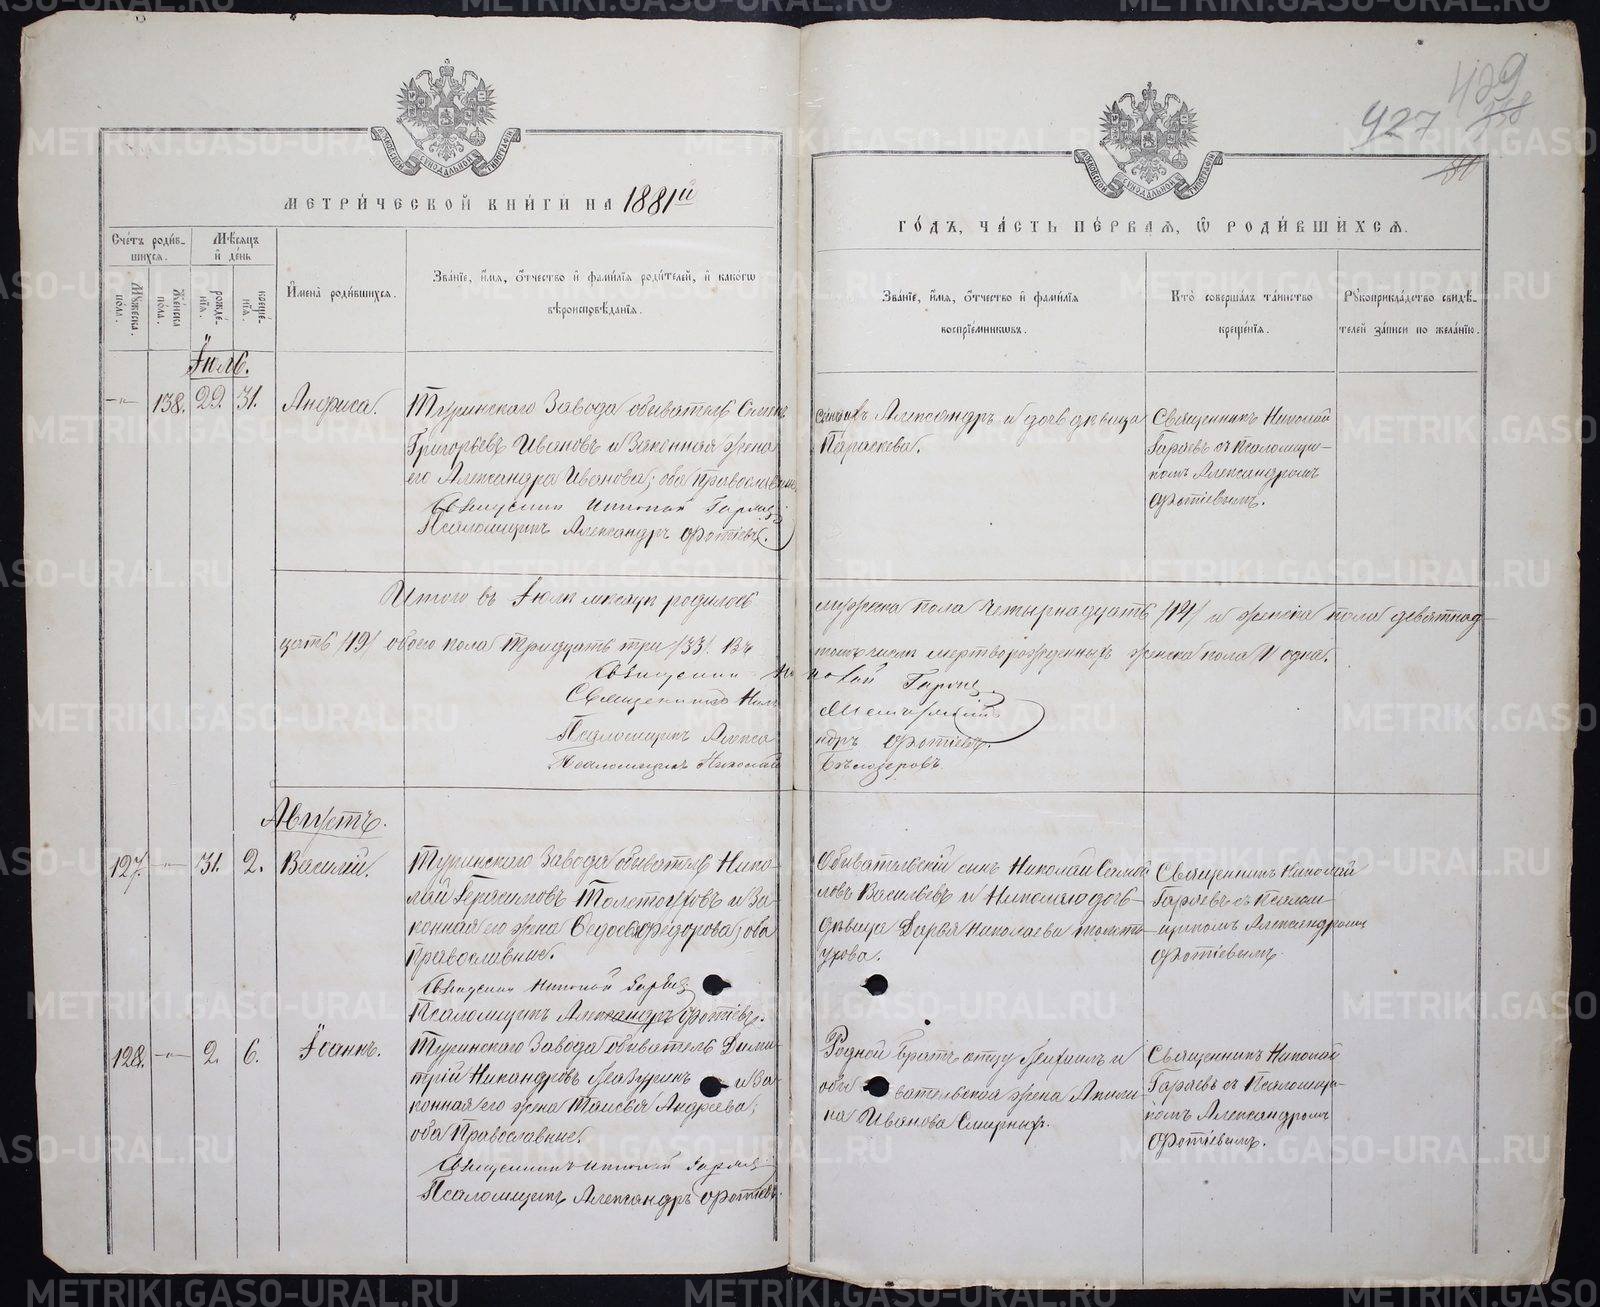 429
427
МЕТРИ́ЧЕСКОЙ КНИ́ГИ НА 1881й
ГО́ДЪ, ЧА́СТЬ ПЕ́РВАѦ, Ѡ҆ РОДИ́ВШИХСѦ.
Сче́тъ роди́в-
шихсѧ.
Мꙋ́жеска по́ла.
Же́нска по́ла.
Мѣ́сѧцъ и҆ де́нь
рожде́-нїѧ.
креще́-нїѧ.
И҆мена̀ роди́вшихсѧ.
Зва́нїе, и҆́мѧ, ѻ҆́тчество и҆ фами́лїѧ роди́телей, и҆ како́гѡ
вѣроисповѣ́данїѧ.
Зва́нїе, и҆́мѧ, ѻ҆́тчество и҆ фами́лїѧ
воспрїе́мникѡвъ.
Кто̀ соверша́лъ та́инство
креще́нїѧ.
Рꙋкоприкла́дство свидѣ́-
телей за́писи по жела́нїю.
Іюль.
—"— 138. 29. 31. Анфиса.
Туринскаго Завода обыватель Симонъ
Григорьевъ Ивановъ и Законная жена
его Александра Иванова; оба православные.
Священникъ Николай Гаряевъ
Псаломщикъ Александръ Фотіевъ.
Александръ и дочь девица
Параскева.
Священникъ Николай
Гаряевъ съ Псаломщи-
комъ Александромъ
Фотіевымъ.
Итого въ Іюлѣ месяцѣ родилось мужеска пола четырнадцать /14/ и женска пола девятнад-
цать /19/ обоего пола тридцать три /33/. Въ томъ числѣ мертворожденныхъ женска пола 1 одна.
Священникъ Николай Гаряевъ
Псаломщикъ Александръ Фотіевъ.
Псаломщикъ Николай Бѣлозеровъ
Августъ.
127. —"— 31. 2. Василій.
Туринскаго Завода обыватель Нико-
лай Герасимовъ Толстоуховъ и За-
конная его жена Федосья Федорова; оба
православные.
Священникъ Николай Гаряевъ
Псаломщикъ Александръ Фотіевъ.
Обывательскій сынъ Николай Самой
ловъ Васильевъ и Николаю дочь
дѣвица Дарья Николаева Толсто-
ухова.
Священникъ Николай
Гаряевъ съ Псалом-
щикомъ Александромъ
Фотіевымъ.
128. —"— 2. 6. Іоаннъ.
Туринскаго Завода обыватель Дими-
трій Никандровъ Мазуринъ и За-
конная его жена Таисья Андреева;
оба Православные.
Священникъ Николай Гаряевъ
Псаломщикъ Александръ Фотіевъ.
Родной братъ отцу Михаилъ и
обывательская жена Акили-
на Иванова Смирныхъ.
Священникъ Николай
Гаряевъ съ Псаломщи-
комъ Александромъ
Фотіевымъ.
METRIKI.GASO-URAL.RU